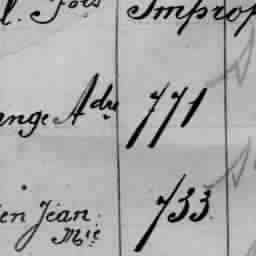 l. Fois Improp
ange Adre 771
ien Jean 733
Mie